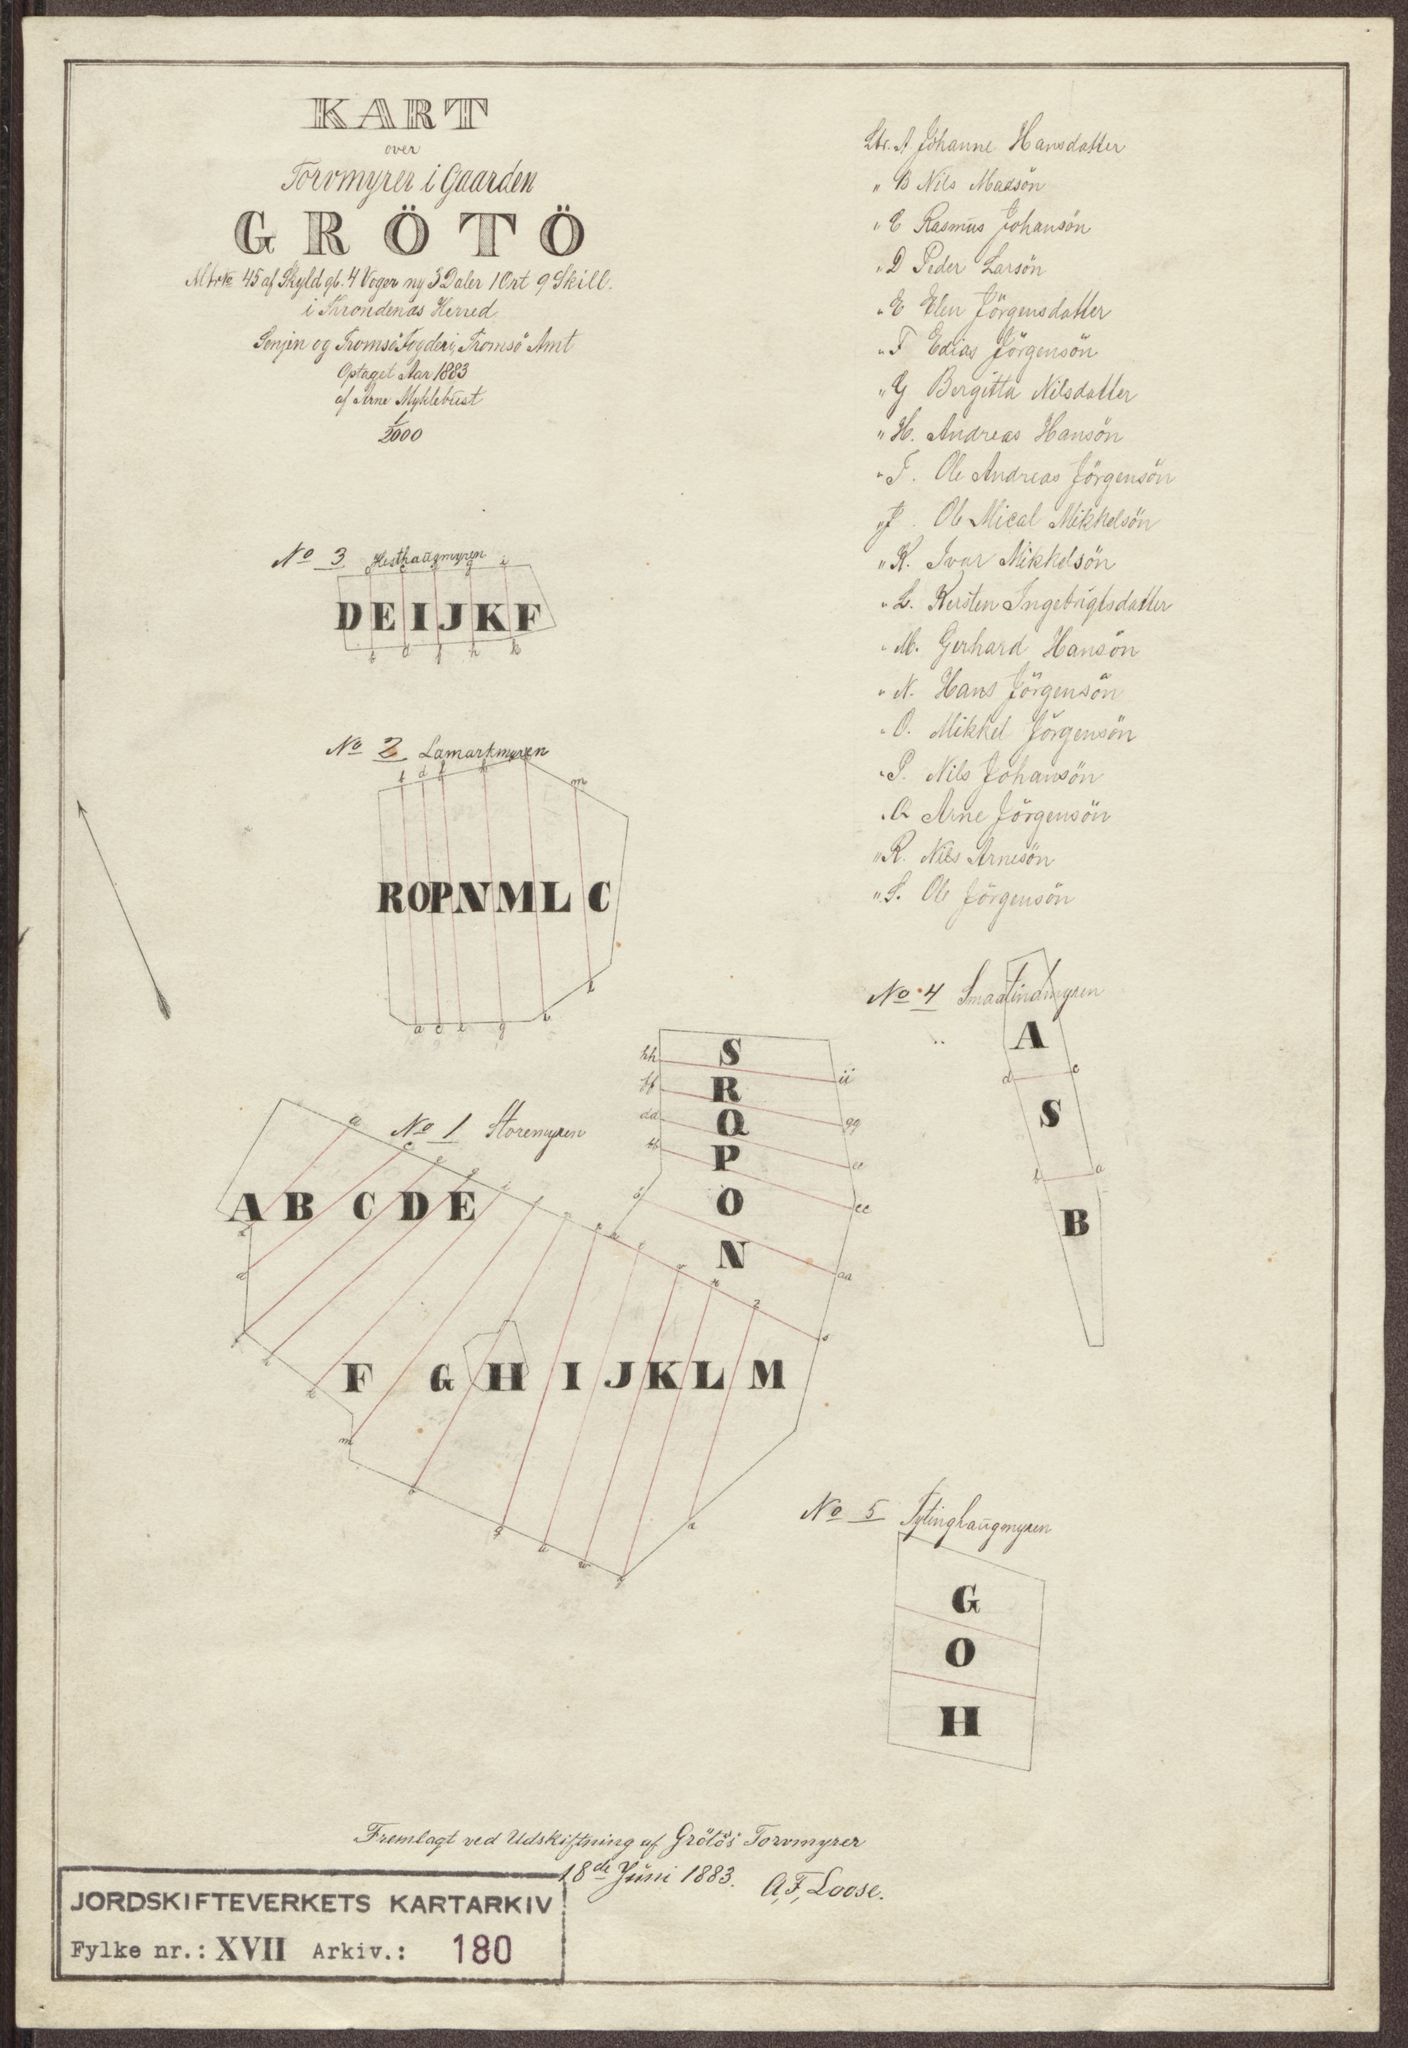 KART
over
Torvmyrer i Gaarden
GRÖTÖ
Mtr№ 45 af Skyld gl. 4 Voger ny 3 Daler 1 Ort 9 Skill.
i Throndenæs Herred
Senjen og Tromsö Fogderi, Tromsö Amt
Optaget Aar 1883
af Arne Myklebust
1/2000
Ltr. A Johanne Hansdatter
" B Nils Madsön
" C Rasmus Johansön
" D Peder Larsön
" E Elen Jörgensdatter
" F Edias Jörgensön
" G Bergitta Nilsdatter
" H. Andreas Hansön
" I. Ole Andreas Jörgensön
" J. Ole Mical Mikkelsön
" K. Ivar Mikkelsön
" L. Kersten Ingebrigtsdatter
" M. Gerhard Hansön
" N. Hans Jörgensön
" O. Mikkel Jörgensön
" P. Nils Johansön
" Q Arne Jörgensön
" R. Nils Arnesön
" S. Ole Jörgensön
No 3 Hesthaugmyren
D E I J K F
b d f h k
No 2 Lamarkmyren
b d f h m
R O P N M L C
a c e g
No 4 Smaalindmyren
A
d c
S
b a
B
No 1 Storemyren
A B C D E
F G H I J K L M
hh S ii
ff R gg
dd Q ee
bb P cc
O
N aa
No 5 Tytinghaugmyren
G
O
H
Fremlagt ved Udskiftning af Grötö's Torvmyrer
18de Juni 1883. A. F. Loose.
JORDSKIFTEVERKETS KARTARKIV
Fylke nr.: XVII Arkiv.: 180